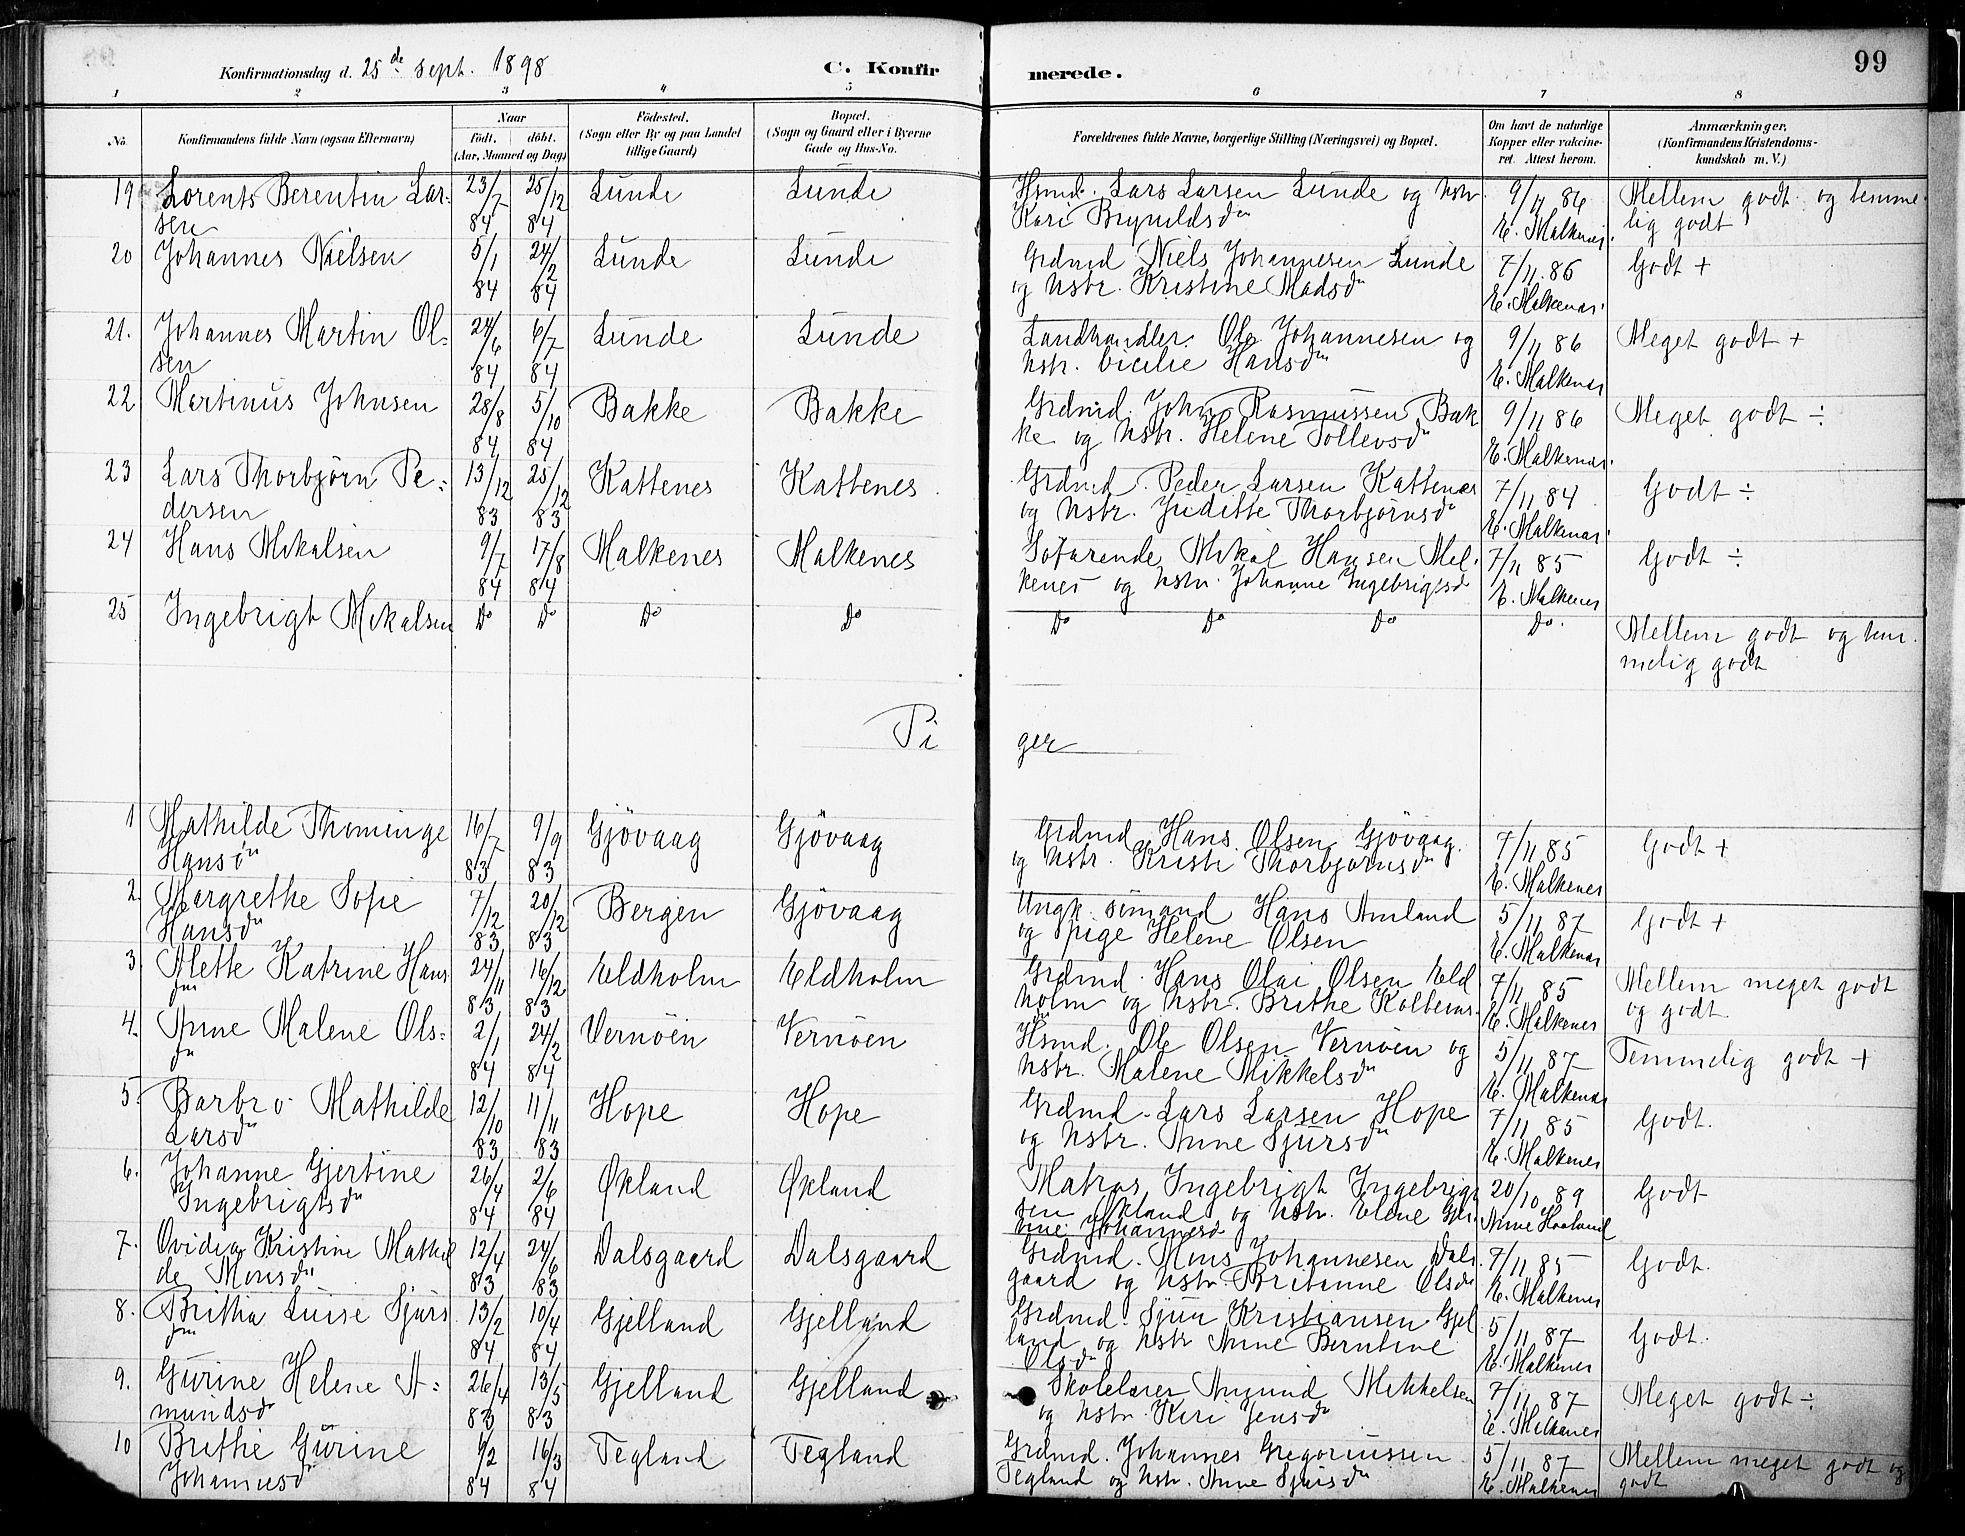 Konfirmationsdag d. 25de sept. 1898
C. Konfirmerede.
99
1 2 3 4 5 6 7 8
No.
Konfirmandens fulde Navn (ogsaa Efternavn)
Naar
födt. döbt.
(Aar, Maaned og Dag)
Födested.
(Sogn eller By og paa Landet
tillige Gaard)
Bopæl.
(Sogn og Gaard eller i Byerne
Gade og Hus-No.
Forældrenes fulde Navne, borgerlige Stilling (Næringsvei) og Bopæl.
Om havt de naturlige
Kopper eller vaccine-
ret. Attest herom.
Anmærkninger.
(Konfirmandens Kristendoms-
kundskab m. V.)
19 Lorents Berentin Lar- 23/7 25/12 Lunde Lunde Hsmd. Lars Larsen Lunde og hstr. 9/11 86 Mellem godt og temme-
sen 84 84 Kari Brynildsdr E. Malkenes. lig godt
20 Johannes Nielsen 5/1 24/2 Lunde Lunde Grdmd Niels Johannesen Lunde 7/11 86 Godt +
84 84 og hstr. Kristine Madsdr E. Malkenes.
21. Johannes Martin Ol- 24/6 6/7 Lunde Lunde Landhandler Ole Johannesen og 9/11 86 Meget godt +
sen 84 84 hstr. Cicilie Hansdr E. Malkenes
22 Martinus Johnsen 28/8 5/10 Bakke Bakke Grdmd. John Rasmussen Bak 9/11 86 Meget godt ÷
84 84 ke og hstr. Helene Tollevsdr E. Malkenes.
23 Lars Thorbjörn Pe- 13/12 25/12 Kattenes Kattenes Grdmd. Peder Larsen Kattenes 7/11 84 Godt ÷
dersen 83 83 og hstr. Juditte Thorbjørnsdr E. Malkenes.
24 Hans Mikalsen 9/7 17/8 Malkenes Malkenes Söfarende Mikal Hansen Mal- 7/11 85 Godt ÷
84 84 kenes og hstr. Johanne Ingebrigtsdr E. Malkenes
25 Ingebrigt Mikalsen Do Do Do Do Do Do Do Do. Mellem godt og tem-
melig godt
Piger
1 Mathilde Thominge 16/7 9/9 Gjövaag Gjövaag Grdmd. Hans Olsen Gjövaag 7/11 85 Godt +
Hansdr 83 83 og hstr. Kristi Thorbjørnsdr E. Malkenes
2. Margrethe Sofie 7/12 20/12 Bergen Gjövaag Ungk. sömand Hans Amland 5/11 87 Godt +
Hansdr 83 83 og pige Helene Olsen E. Malkenes
3. Mette Katrine Hans 24/11 16/12 Eldholm Eldholm Grdmd. Hans Olai Olsen Eld 7/11 85 Mellem meget godt
dr 83 83 holm og hstr. Brithe Kolbens- E. Malkenes og godt
4. Anne Malene Ols- 2/1 24/2 Vernöen Vernöen Hsmd. Ole Olsen Vernöen og 5/11 87 Temmelig godt +
dr 84 84 hstr. Malene Mikkelsdr E. Malkenes
5. Barbro Mathilde 12/10 11/11 Hope Hope Grdmd. Lars Larsen Hope 7/11 85 Godt.
Larsdr 83 83 og hstr. Anne Sjursdr E. Malkenes
6. Johanne Gjertine 26/4 2/6 Økland Økland Matros Ingebrigt Ingebrigt 20/10 89 Godt
Ingebrigtsdr 84 84 sen Økland og hstr. Elene Anne Haaland
Johannesdr
7. Ovidia Kristine Mathil 12/4 24/6 Dalsgaard Dalsgaard Grdmd. Mons Johannesen Dals- 7/11 85 Godt.
de Monsdr 83 83 gaard og hstr Britanne Olsdr E. Malkenes
8. Brithe Luise Sjurs 13/2 10/4 Gjelland Gjelland Grdmd. Sjur Kristiansen Gjel 5/11 87 Godt.
dr 84 84 land og hstr Anne Berntine E. Malkenes
Olsdr
9. Gurine Helene A- 26/4 13/5 Gjelland Gjelland Skolelærer Amund Mikkelsen 7/11 87 Meget godt ÷
mundsdr 83 83 og hstr. Kari Jensdr E. Malkenes
10 Brithe Gurine 16/3 Tegland Tegland Grdmd. Johannes Gregoriussen 5/11 87 Mellem meget godt og
Johannesdr 84 84 Tegland og hstr. Anne Sjursdr E. Malkenes godt